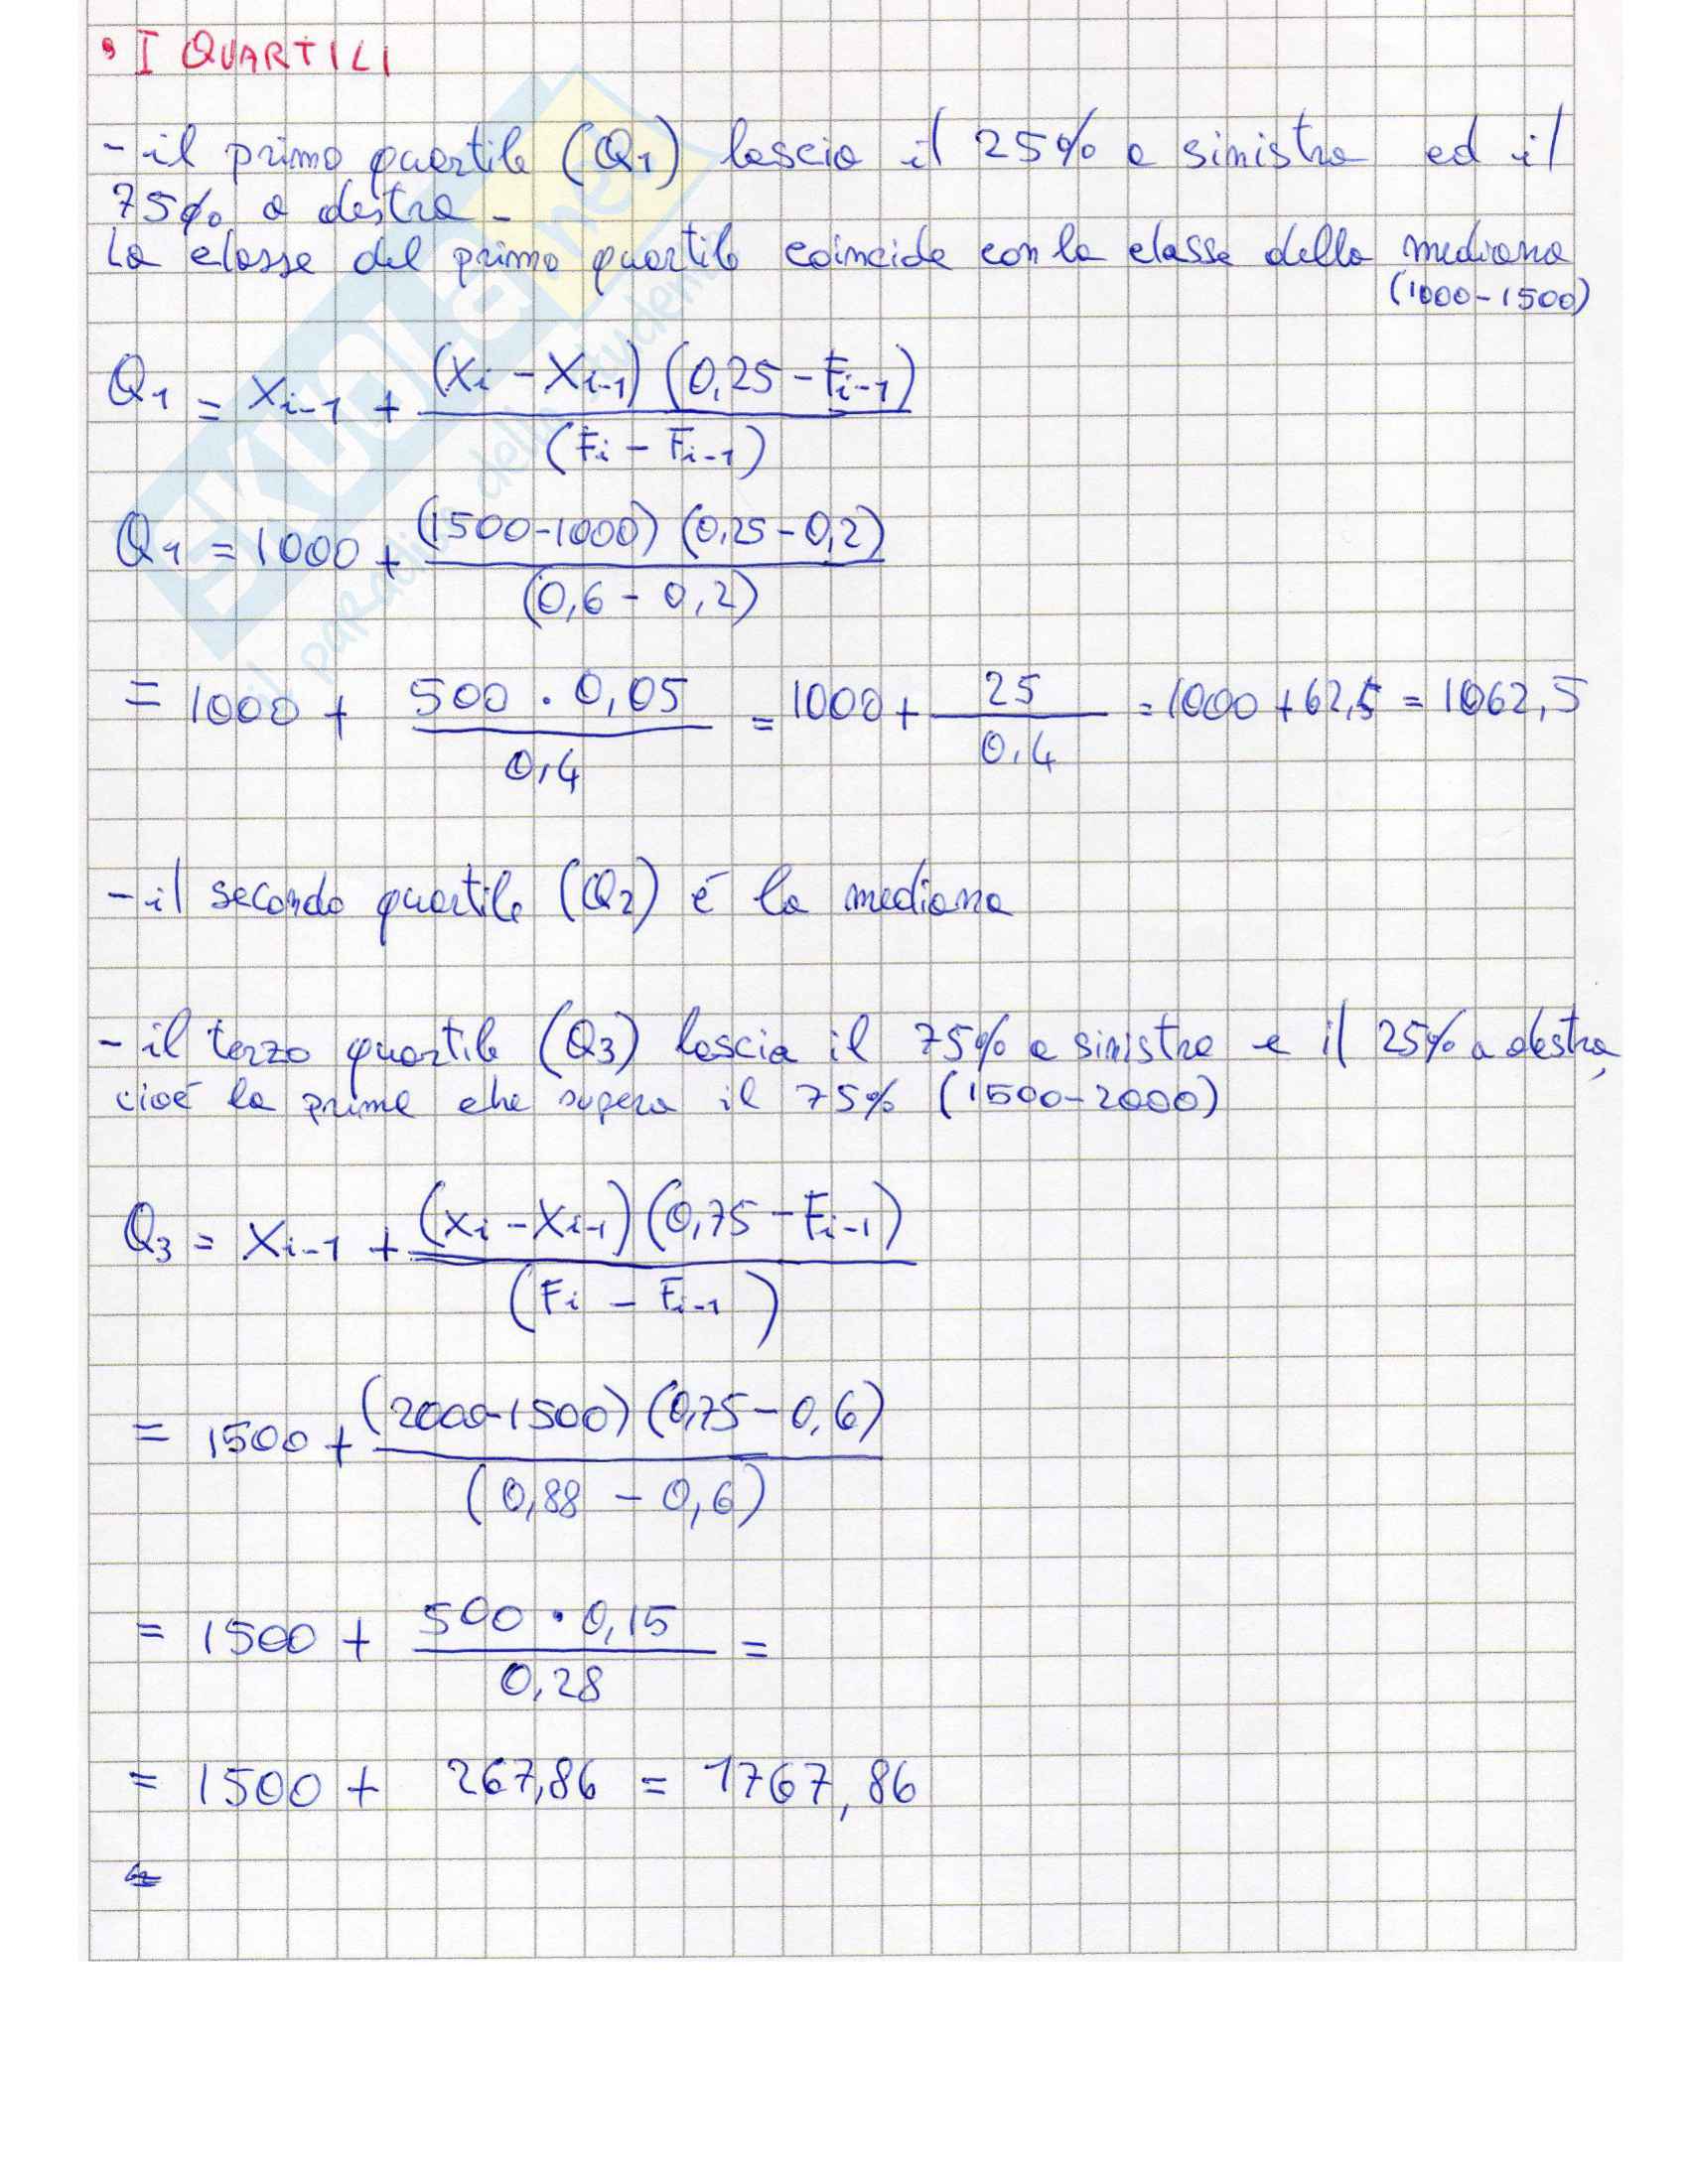 • I QUARTILI
- il primo quartile (Q1) lascia il 25% a sinistra ed il
75% a destra -
La classe del primo quartile coincide con la classe della mediana
(1000-1500)
Q1 = Xi-1 + (Xi - Xi-1) (0,25 - Fi-1)
(Fi - Fi-1)
Q1 = 1000 + (1500-1000) (0,25-0,2)
(0,6 - 0,2)
= 1000 + 500 · 0,05 = 1000 + 25 = 1000 + 62,5 = 1062,5
0,4 0,4
- il secondo quartile (Q2) é la mediana
- il terzo quartile (Q3) lascia il 75% a sinistra e il 25% a destra,
cioé la prima che supera il 75% (1500-2000)
Q3 = Xi-1 + (Xi - Xi-1) (0,75 - Fi-1)
(Fi - Fi-1)
= 1500 + (2000-1500) (0,75-0,6)
(0,88 - 0,6)
= 1500 + 500 · 0,15 =
0,28
= 1500 + 267,86 = 1767,86
SKUOLA.net
il paradiso dello studente